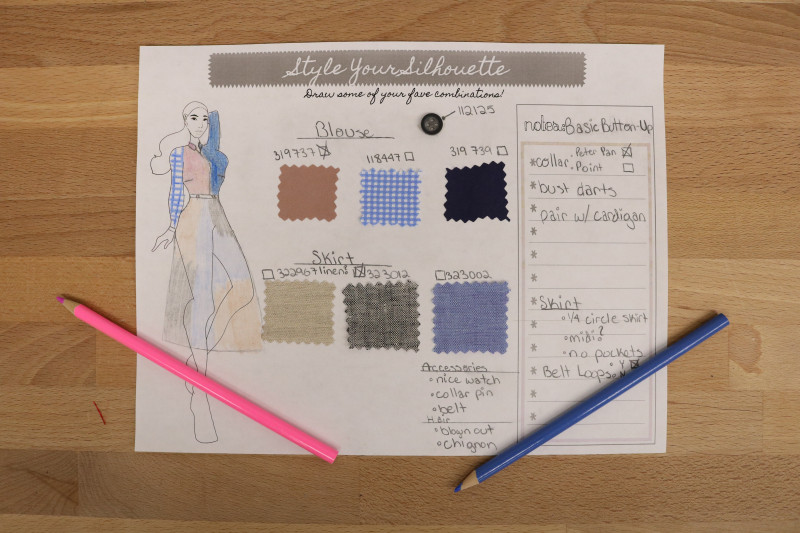 Style Your Silhouette
Draw some of your fave combinations!
112125
Blouse
319737
118447
319739
Skirt
322967 linen
323012
323002
Accessories
◦ nice watch
◦ collar pin
◦ belt
Hair
◦ blown out
◦ chignon
notes: Basic Button-Up
* collar ◦ Peter Pan
◦ Point
* bust darts
* pair w/ cardigan
*
*
*
* Skirt
* ◦ 1/4 circle skirt
* ◦ midi?
* ◦ no pockets
* Belt Loops ◦ Y
◦ N
*
*